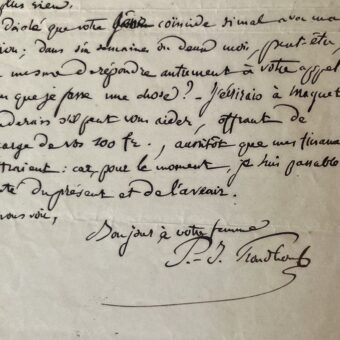 plus rien.
désolé que votre gêne coïncide si mal avec ma
; dans six semaines ou deux mois, peut-être,
mesure de répondre autrement à votre appel
que je fasse une chose ? J'écrirais à Maquet
s'il peut vous aider, offrant de
charge de vos 100 fr., aussitôt que mes finances
: car, pour le moment, je suis passable
du présent et de l'avenir.
vous voir,
Bonjour à votre femme
P.-J. Proudhon